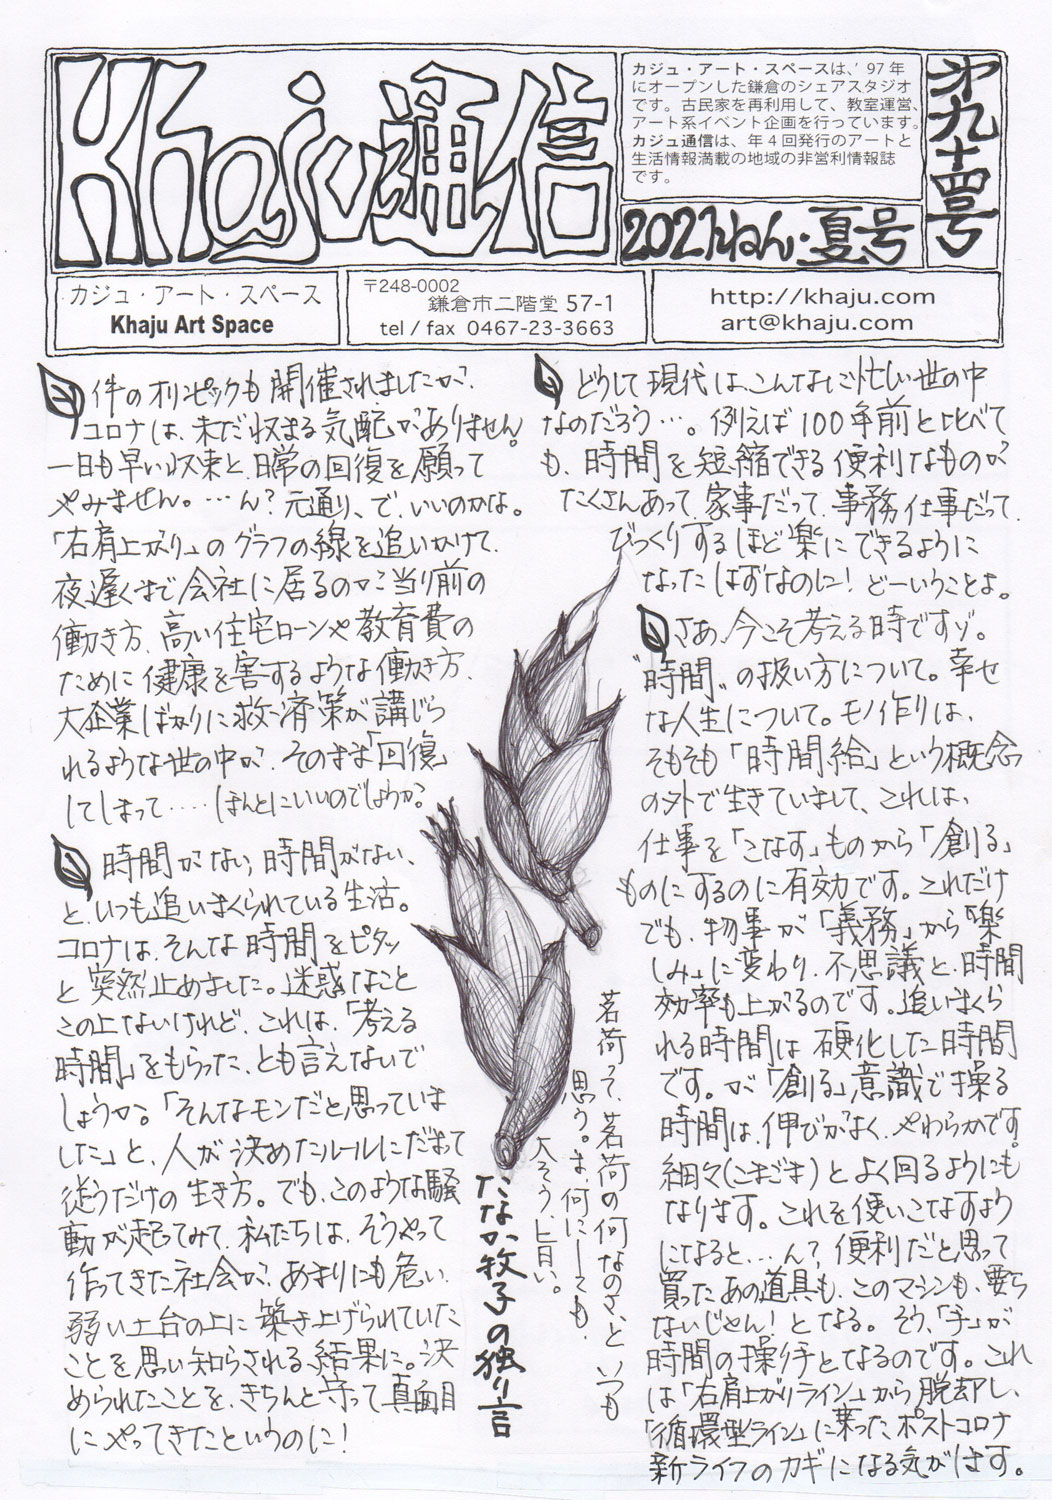 Khaju通信
カジュ・アート・スペースは、'97年
にオープンした鎌倉のシェアスタジオ
です。古民家を再利用して、教室運営、
アート系イベント企画を行っています。
カジュ通信は、年4回発行のアートと
生活情報満載の地域の非営利情報誌
です。
2021ねん・夏号
第九十四号
カジュ・アート・スペース
Khaju Art Space
〒248-0002
鎌倉市二階堂 57-1
tel / fax 0467-23-3663
http://khaju.com
art@khaju.com
件のオリンピックも開催されましたが、
コロナは、未だ収まる気配がありません。
一日も早い収束と、日常の回復を願って
やみません。…ん？元通り、で、いいのかな。
「右肩上がり」のグラフの線を追いかけて、
夜遅くまで会社に居るのが当り前の
働き方、高い住宅ローンや教育費の
ために健康を害するような働き方、
大企業ばかりに救済策が講じら
れるような世の中が、そのまま「回復」
してしまって……ほんとにいいのでしょうか？
時間がない、時間がない、
と、いつも追いまくられている生活。
コロナは、そんな時間をピタッ
と突然止めました。迷惑なこと
この上ないけれど、これは、「考える
時間」をもらった、とも言えないで
しょうか。「そんなモンだと思っていま
した」と、人が決めたルールにだまって
従うだけの生き方。でも、このような騒
動が起ってみて、私たちは、そうやって
作ってきた社会が、あまりにも危い、
弱い土台の上に築き上げられていた
ことを思い知らされる結果に。決
められたことを、きちんと守って真面目
にやってきたというのに！
どうして現代は、こんなに忙しい世の中
なのだろう…。例えば100年前と比べて
も、時間を短縮できる便利なものが
たくさんあって、家事だって、事務仕事だって、
びっくりするほど楽にできるように
なったはずなのに！どーいうことよ。
さあ、今こそ考える時ですゾ。
“時間”の扱い方について。幸せ
な人生について。モノ作りは、
そもそも「時間給」という概念
の外で生きていまして、これは、
仕事を「こなす」ものから「創る」
ものにするのに有効です。これだけ
でも、物事が「義務」から「楽
しみ」に変わり、不思議と、時間
効率も上がるのです。追いまくら
れる時間は硬化した時間
です。が「創る」意識で操る
時間は、伸びがよく、やわらかです。
細々(こまごま)とよく回るようにも
なります。これを使いこなすよう
になると…ん？便利だと思って
買ったあの道具も、このマシンも、要ら
ないじゃん！となる。そう、「手」が
時間の操り手となるのです。これ
は「右肩上がりライン」から脱却し、
「循環型ライン」に乗った、ポストコロナ
新ライフのカギになる気がします。
茗荷って、茗荷の何なのさ、と いつも
思う。ま、何にしても、
大そう、ヒ目い。
たなか牧子の独り言